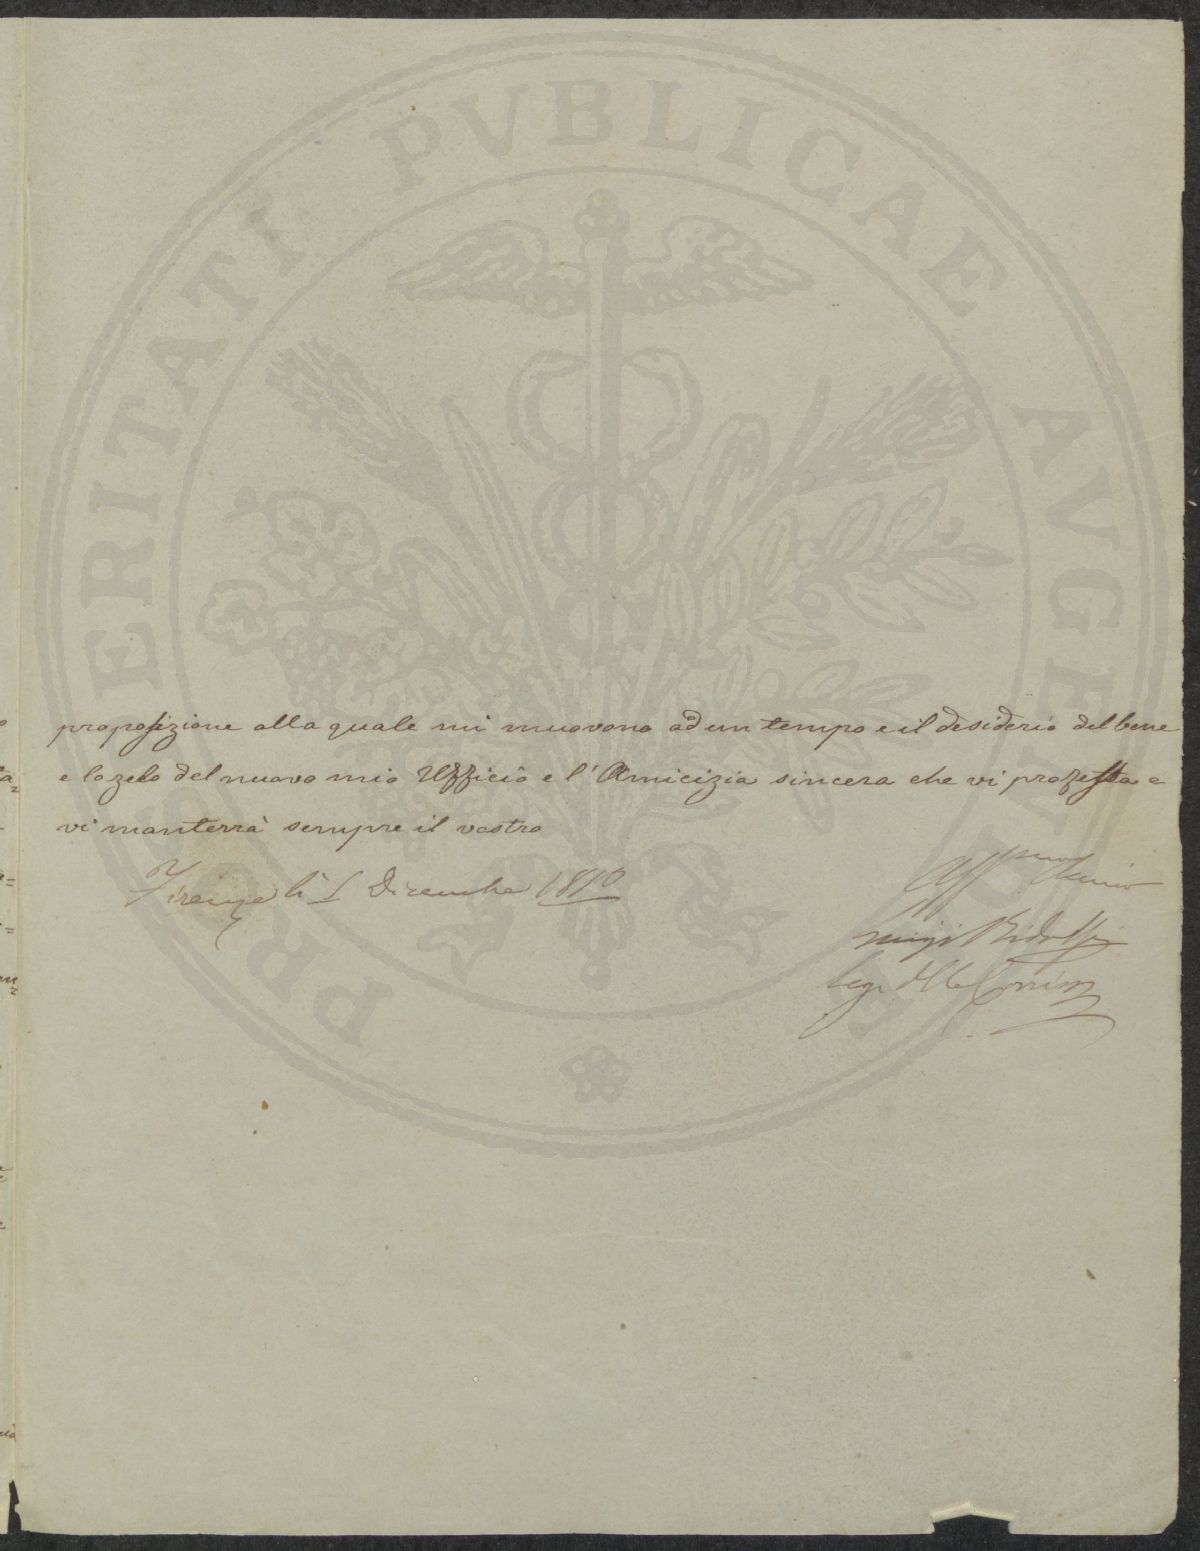 proposizione alla quale mi muovono ad un tempo e il desiderio del bene
e lo zelo del nuovo mio Uffizio e l'Amicizia sincera che vi professa e
vi manterrà sempre il vostro
Firenze li 1 Dicembre 1810
Aff.mo Amico
Luigi Ridolfi
PROSPERITATI PVBLICAE AVGENDAE